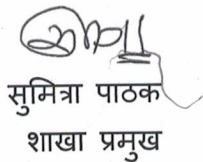 सुमित्रा पाठक
शाखा प्रमुख